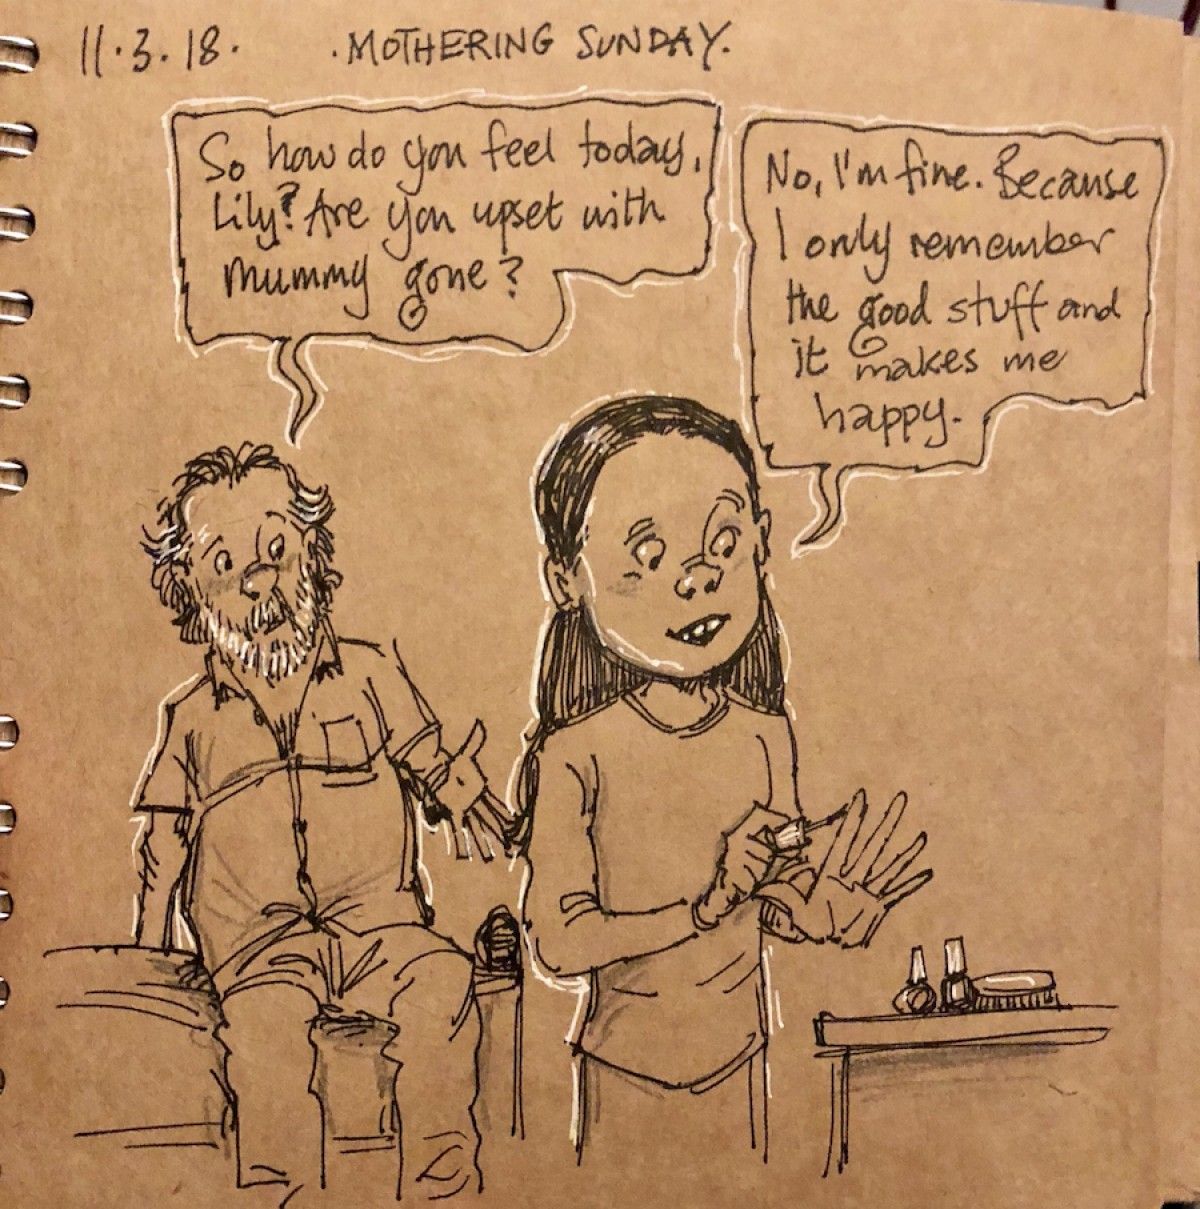 11.3.18. .MOTHERING SUNDAY.
So how do you feel today,
Lily? Are you upset with
mummy gone?
No, I'm fine. Because
I only remember
the good stuff and
it makes me
happy.